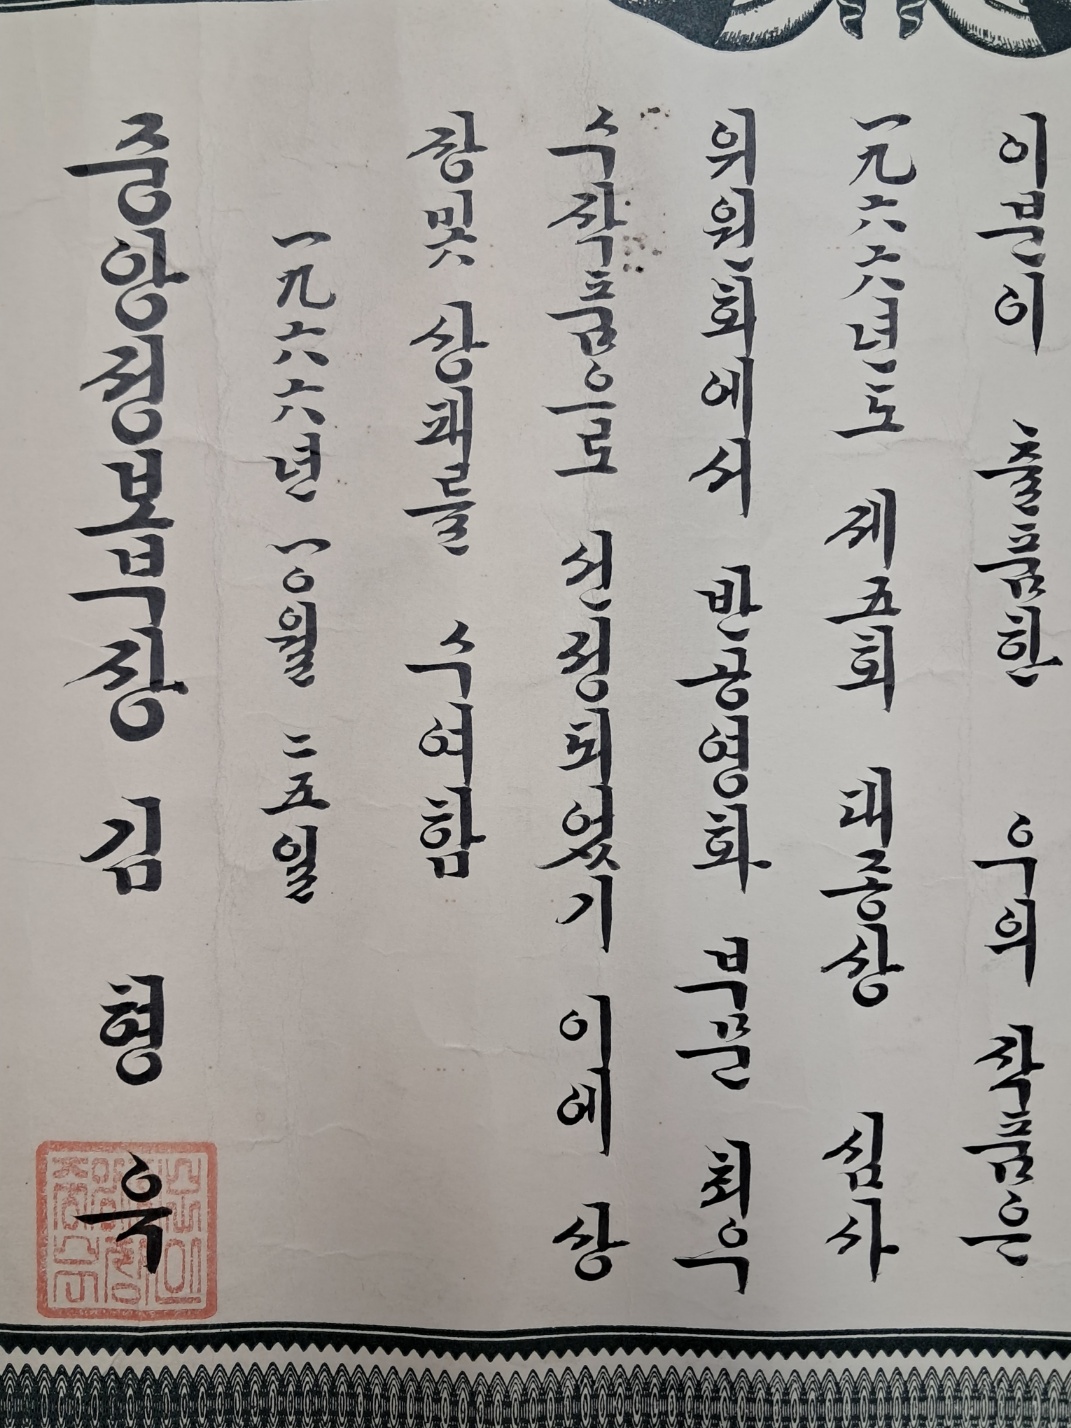 이분이 출품한 우의 작품은
一九六六년도 제五회 대종상 심사
위원회에서 반공영화 부문 최우
수작품으로 선정되였기 이에 상
장및 상패를 수여함
一九六六년 一○월 二五일
중앙정보부장 김 형 욱